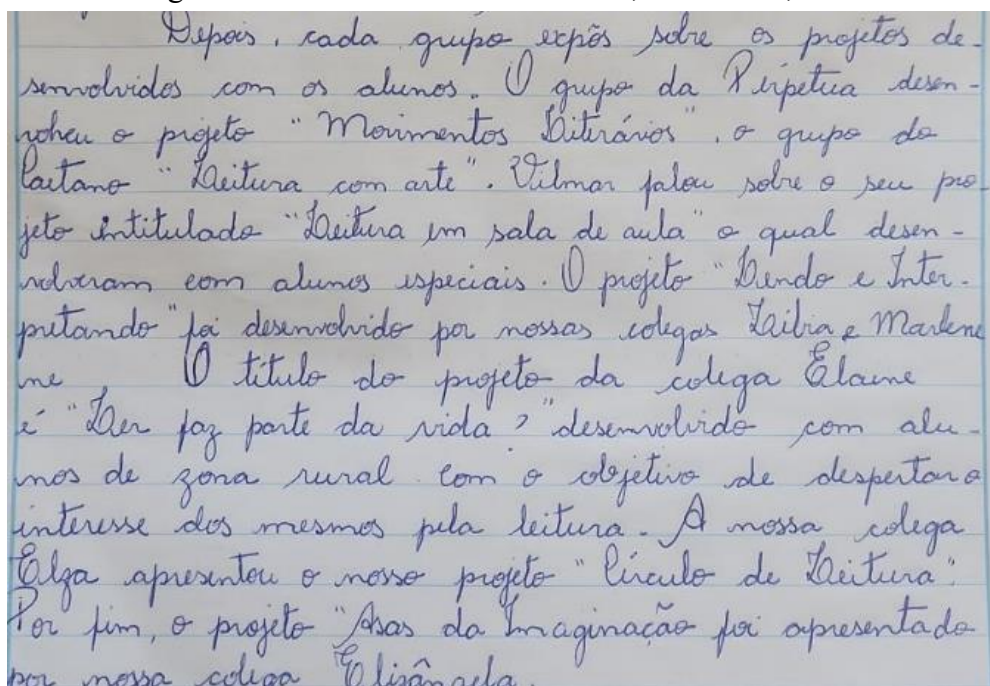 Depois, cada grupo expôs sobre os projetos de-
senvolvidos com os alunos. O grupo da Perpétua desen-
volveu o projeto "Movimentos Literários", o grupo do
Caetano "Leitura com arte". Vilmar falou sobre o seu pro-
jeto intitulado "Leitura em sala de aula" o qual desen-
volveram com alunos especiais. O projeto "Lendo e Inter-
pretando" foi desenvolvido por nossas colegas e Marlene
ne O título do projeto da colega Elaine
é "Ler faz parte da vida?" desenvolvido com alu-
nos de zona rural com o objetivo de despertar o
interesse dos mesmos pela leitura. A nossa colega
Elza apresentou o nosso projeto "Círculo de Leitura".
Por fim, o projeto "Asas da Imaginação foi apresentado
por nossa colega Elisângela.